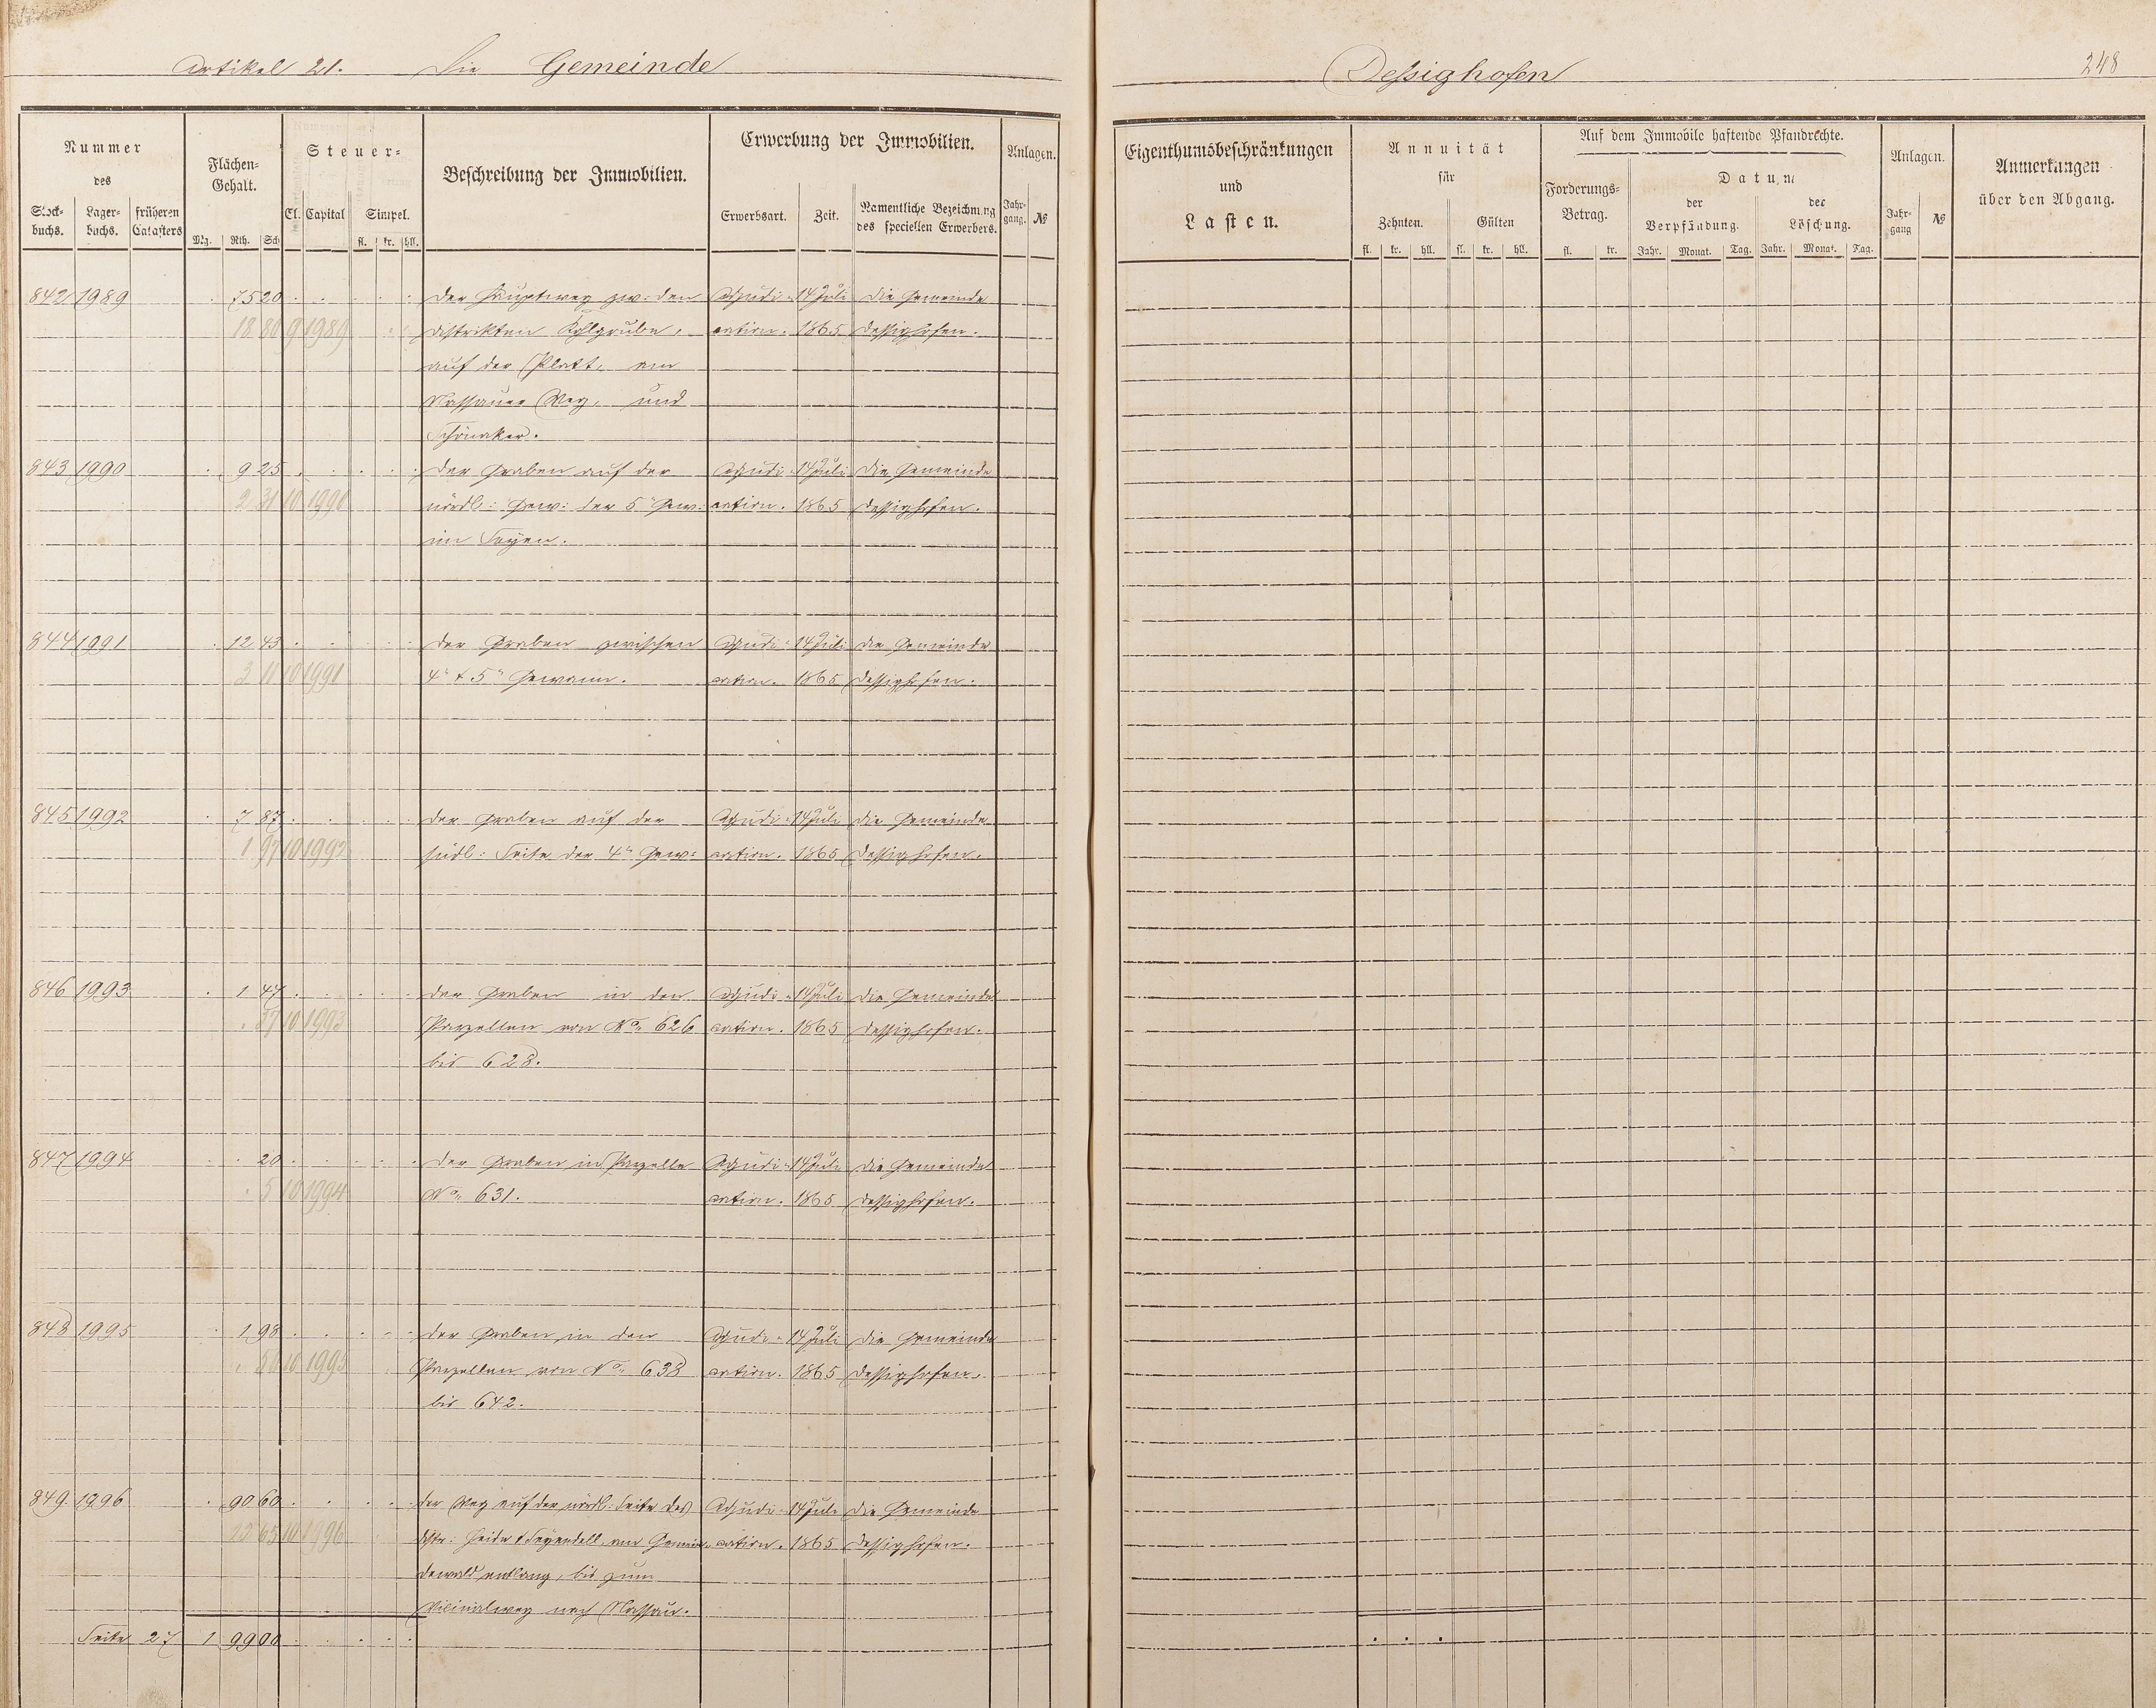 Artikel 21. Die Gemeinde
Dessighofen
248
Nummer
des
Stock-
buchs.
Lager-
buchs.
früheren
Catasters
Flächen-
Gehalt.
Mg. Rth. Sch
Steuer-
Cl. Capital Simpel.
fl. kr. hll.
Beschreibung der Immobilien.
Erwerbung der Immobilien.
Erwerbsart. Zeit.
Namentliche Bezeichnung
des speciellen Erwerbers.
Anlagen.
Jahr-
gang. №
Eigenthumsbeschränkungen
und
Lasten.
Annuität
für
Zehnten. Gülten
fl. kr. hll. fl. kr. hll.
Auf dem Immobile haftende Pfandrechte.
Forderungs-
Betrag.
fl. kr.
Datum
der
Verpfändung.
der
Löschung.
Jahr. Monat. Tag. Jahr. Monat. Tag.
Anlagen.
Jahr-
gang №
Anmerkungen
über den Abgang.
842 1989 75 20 der Hauptweg zw: den Adjudi- 14 Juli die Gemeinde
18 80 9 1989 Distrikten Kohlgrube, cation. 1865 Dessighofen.
auf der Platt, am
Nassauer Weg, und
Schönaker.
843 1990 9 25 der Graben auf der Adjudi- 14 Juli die Gemeinde
2 31 10 1990 nördl: Gew: der 5n Gew: cation. 1865 Dessighofen.
im
844 1991 12 43 der Graben zwischen Adjudi- 14 Juli die Gemeinde
3 11 10 1991 4n & 5n Gewann. cation. 1865 Dessighofen.
845 1992 7 87 der Graben auf der Adjudi- 14 Juli die Gemeinde
1 97 10 1992 südl: Seite der 4n Gew: cation. 1865 Dessighofen.
846 1993 1 47 der Graben in den Adjudi- 14 Juli die Gemeinde
37 10 1993 Parzellen von No. 626 cation. 1865 Dessighofen.
bis 628.
847 1994 20 der Graben in Parzelle Adjudi- 14 Juli die Gemeinde
5 10 1994 No. 631. cation. 1865 Dessighofen.
848 1995 1 98 der Graben in den Adjudi- 14 Juli die Gemeinde
50 10 1995 Parzellen von No. 638 cation. 1865 Dessighofen.
bis 642.
849 1996 90 60 der Weg auf der nördl: Seite des Adjudi- 14 Juli die Gemeinde
22 65 10 1996 Distr: Heide & am Gemein- cation. 1865 Dessighofen.
dewald entlang, bis zum
Vicinalweg nach Nassau.
Seite 27 1 99 00